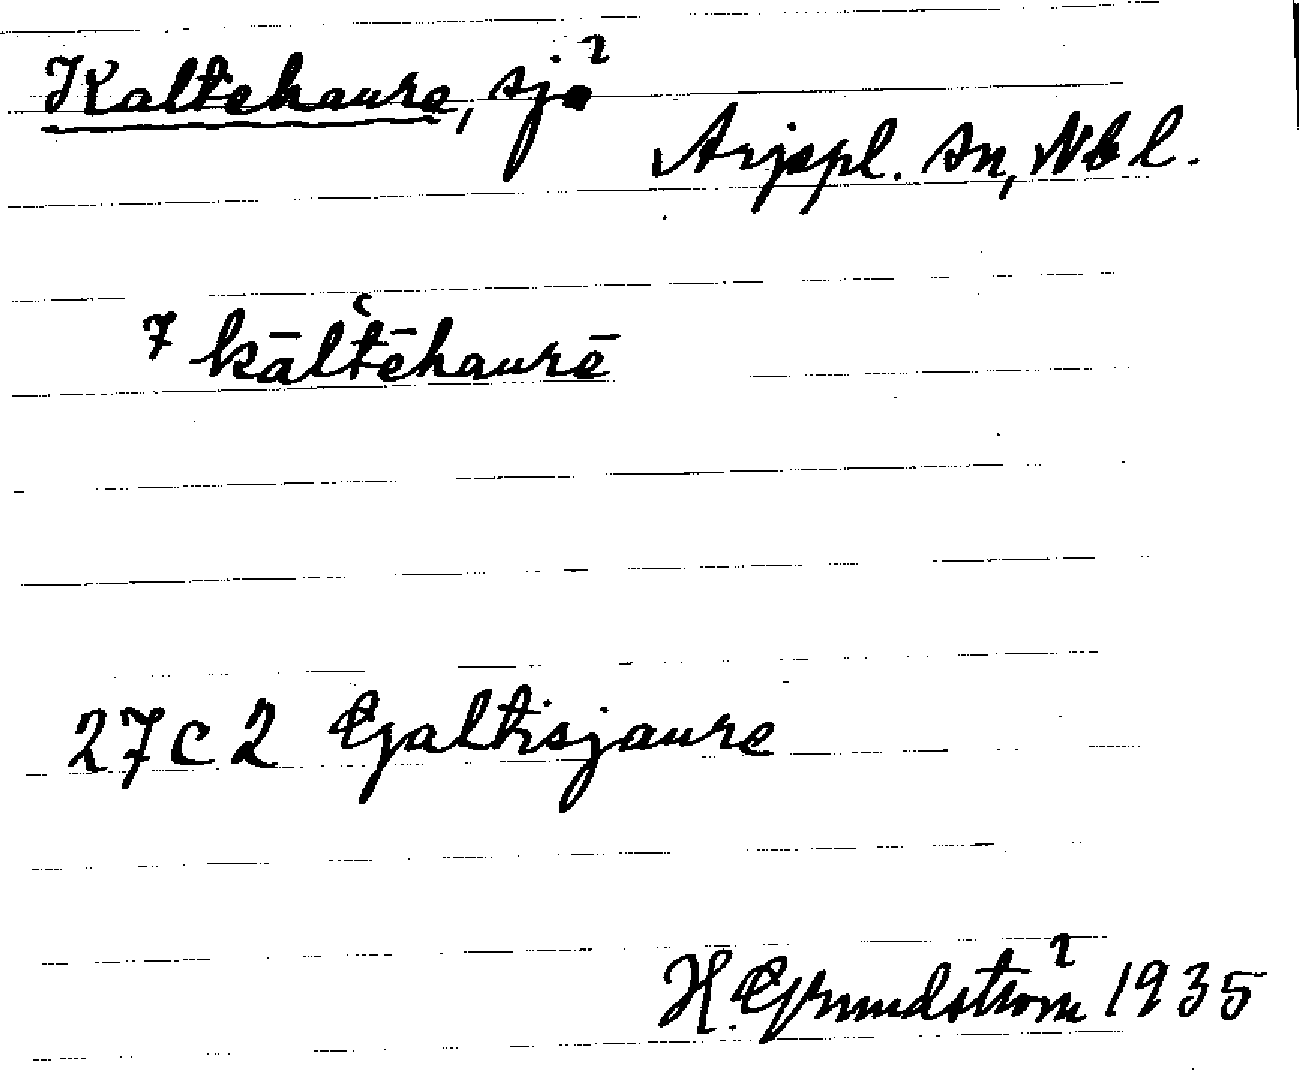 Kaltehaure, sjö
Arjspl. sn, Nbl.
7 kāltʽēhaurē
27 C 2 Galtisjaure
H. Grundström 1935